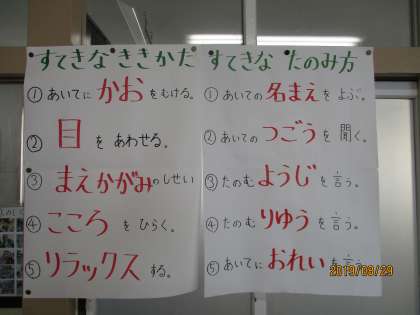 すてきな ききかた
①あいてに かお をむける。
② 目 を あわせる。
③ まえかがみ のしせい
④ こころ を ひらく。
⑤ リラックス する。
すてきな たのみ方
①あいての 名まえ を よぶ。
②あいての つごう を 聞く。
③たのむ ようじ を 言う。
④たのむ りゆう を 言う。
⑤あいてに おれい を 言う。
2019/08/29